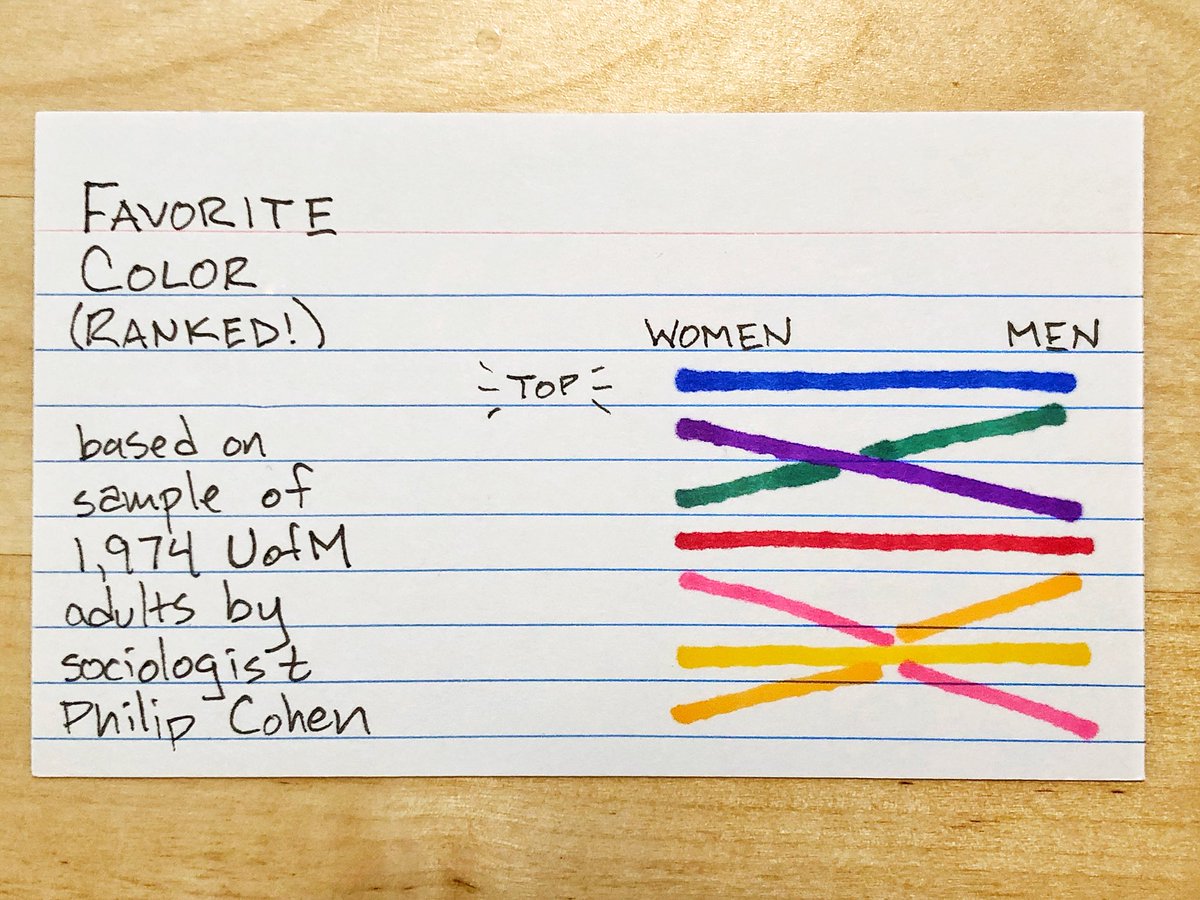 FAVORITE
COLOR
(RANKED!)
WOMEN MEN
TOP
based on
sample of
1,974 UofM
adults by
sociologist
Philip Cohen